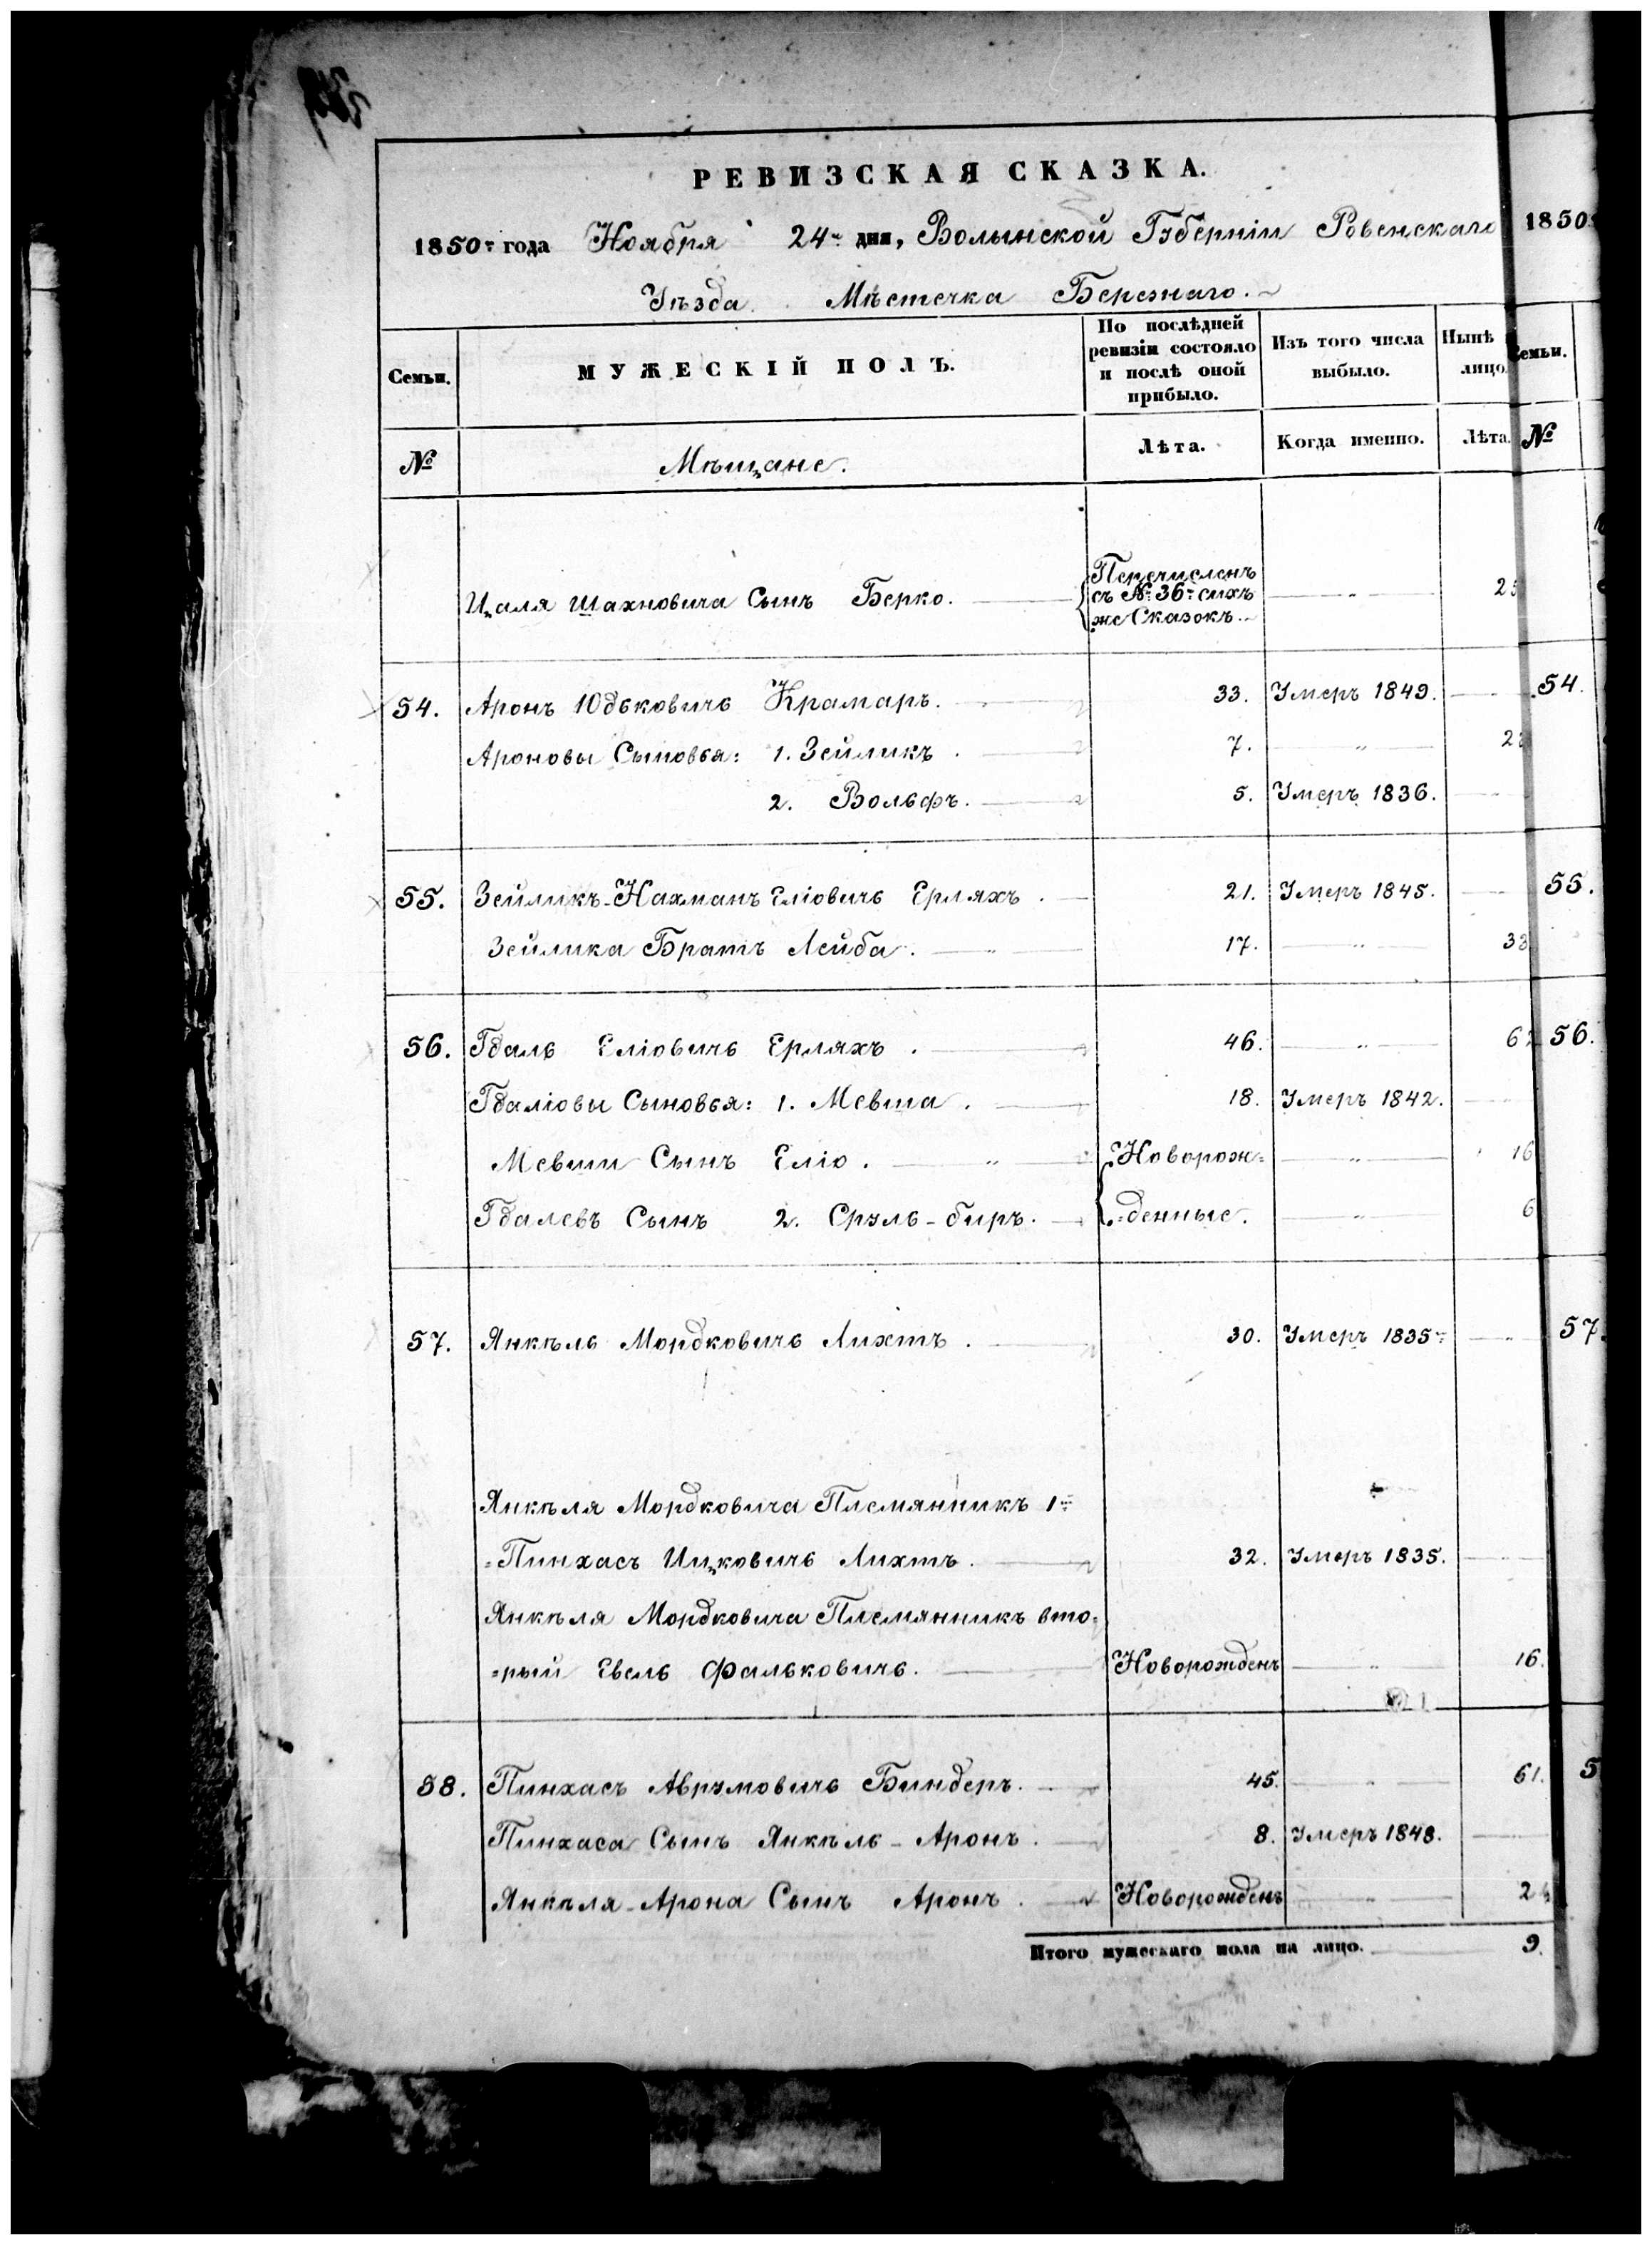 РЕВИЗСКАЯ СКАЗКА.
1850го года Ноября 24го дня, Волынской Губерніи Ровенскаго
Уѣзда Мѣстечка Бережнаго.
1850
Семьи.
МУЖЕСКІЙ ПОЛЪ.
По послѣдней ревизіи состояло и послѣ оной прибыло.
Изъ того числа выбыло.
Нынѣ
лицо
Семьи.
№ Мѣщане. Лѣта. Когда именно. Лѣта. №
Перечисленъ
Цаля Шахновича Сынъ Берко. съ № 36го сихъ — " —
же Сказокъ.
54. Аронъ Юдьковичь Крамаръ. 33. Умеръ 1849. 54.
Ароновы Сыновья: 1. Зейликъ. 7. — " —
2. Вольфъ. 5. Умеръ 1836.
55. Зейликъ-Нахманъ Еліовичь Ерляхъ. 21. Умеръ 1845. 55.
Зейлика Братъ Лейба. — " — 17. — " — 33
56. Гдаль Еліовичь Ерляхъ. 46. — " — 62 56.
Гдаліовы Сыновья: 1. Мевша. 18. Умеръ 1842.
Мевши Сынъ Еліо. — " — Новорож= — " — 16
Гдалевъ Сынъ 2. Сруль-биръ. =денные. — " — 6
57. Янкѣль Мордковичь Лихтъ. 30. Умеръ 1835го 57.
Янкѣля Мордковича Племянникъ 1й
=Пинхасъ Ицковичь Лихтъ. 32. Умеръ 1835.
Янкѣля Мордковича Племянникъ вто=
=рый Евель Фальковичь. Новорожденъ — " — 16.
58. Пинхасъ Аврумовичь Биндеръ. 45. — " — 61. 5
Пинхаса Сынъ Янкѣль-Аронъ. 8. Умеръ 1848.
Янкѣля-Арона Сынъ Аронъ. Новорожденъ — " —
Итого мужескаго пола на лицо. 9.